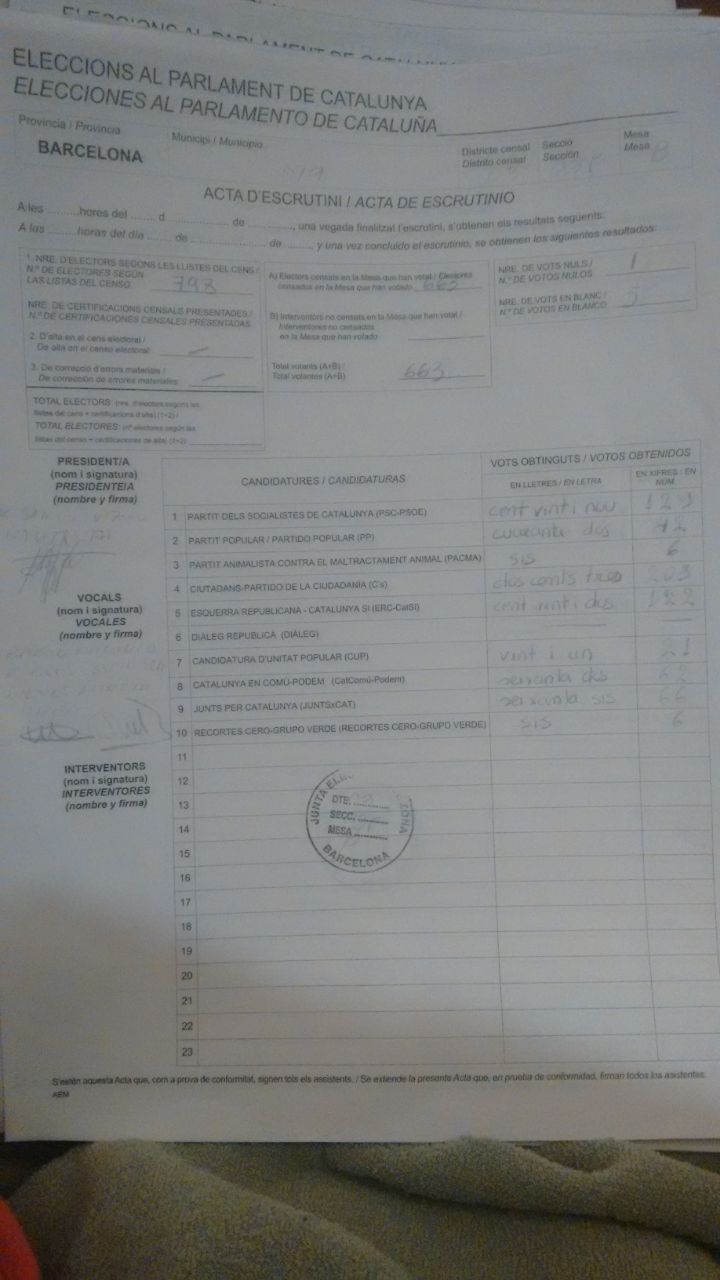 ELECCIONS AL PARLAMENT DE CATALUNYA
ELECCIONES AL PARLAMENTO DE CATALUÑA
Provincia / Provincia Municipi / Municipio Districte censal Secció Mesa
BARCELONA Distrito censal Sección Mesa B
ACTA D'ESCRUTINI / ACTA DE ESCRUTINIO
A les ......... hores del ....... d ................ de ............, una vegada finalitzat l'escrutini, s'obtenen els resultats següents:
A las ......... horas del día ....... de ................ de ........ y una vez concluido el escrutinio, se obtienen los siguientes resultados:
1. NRE. D'ELECTORS SEGONS LES LLISTES DEL CENS /
N.º DE ELECTORES SEGÚN
LAS LISTAS DEL CENSO 798
NRE. DE CERTIFICACIONS CENSALS PRESENTADES /
N.º DE CERTIFICACIONES CENSALES PRESENTADAS
2. D'alta en el cens electoral /
De alta en el censo electoral: —
3. De correcció d'errors materials /
De corrección de errores materiales —
TOTAL ELECTORS: (nre. d'electors segons les
llistes del cens + certificacions d'alta) (1+2) /
TOTAL ELECTORES: (nº electores según las
listas del censo + certificaciones de alta) (1+2)
A) Electors censats en la Mesa que han votat / Electores
censados en la Mesa que han votado 663
B) Interventors no censats en la Mesa que han votat /
Interventores no censados
en la Mesa que han votado
Total votants (A+B) /
Total votantes (A+B) 663
NRE. DE VOTS NULS / 1
N.º DE VOTOS NULOS
NRE. DE VOTS EN BLANC / 5
N.º DE VOTOS EN BLANCO
PRESIDENT/A
(nom i signatura)
PRESIDENTE/A
(nombre y firma)
VOCALS
(nom i signatura)
VOCALES
(nombre y firma)
INTERVENTORS
(nom i signatura)
INTERVENTORES
(nombre y firma)
CANDIDATURES / CANDIDATURAS VOTS OBTINGUTS / VOTOS OBTENIDOS
EN LLETRES / EN LETRA EN XIFRES / EN NÚM.
1 PARTIT DELS SOCIALISTES DE CATALUNYA (PSC-PSOE) cent vint i nou 129
2 PARTIT POPULAR / PARTIDO POPULAR (PP) quaranta dos 42
3 PARTIT ANIMALISTA CONTRA EL MALTRACTAMENT ANIMAL (PACMA) sis 6
4 CIUTADANS-PARTIDO DE LA CIUDADANÍA (C's) dos cents tres 203
5 ESQUERRA REPUBLICANA - CATALUNYA SÍ (ERC-CatSí) cent vint i dos 122
6 DIÀLEG REPUBLICÀ (DIÀLEG) — —
7 CANDIDATURA D'UNITAT POPULAR (CUP) vint i un 21
8 CATALUNYA EN COMÚ-PODEM (CatComú-Podem) seixanta dos 62
9 JUNTS PER CATALUNYA (JUNTSxCAT) seixanta sis 66
10 RECORTES CERO-GRUPO VERDE (RECORTES CERO-GRUPO VERDE) sis 6
11
12
13
14
15
16
17
18
19
20
21
22
23
JUNTA
DTE. ...........
SECC. ...........
MESA ...........
BARCELONA
S'estén aquesta Acta que, com a prova de conformitat, signen tots els assistents. / Se extiende la presente Acta que, en prueba de conformidad, firman todos los asistentes.
AEM